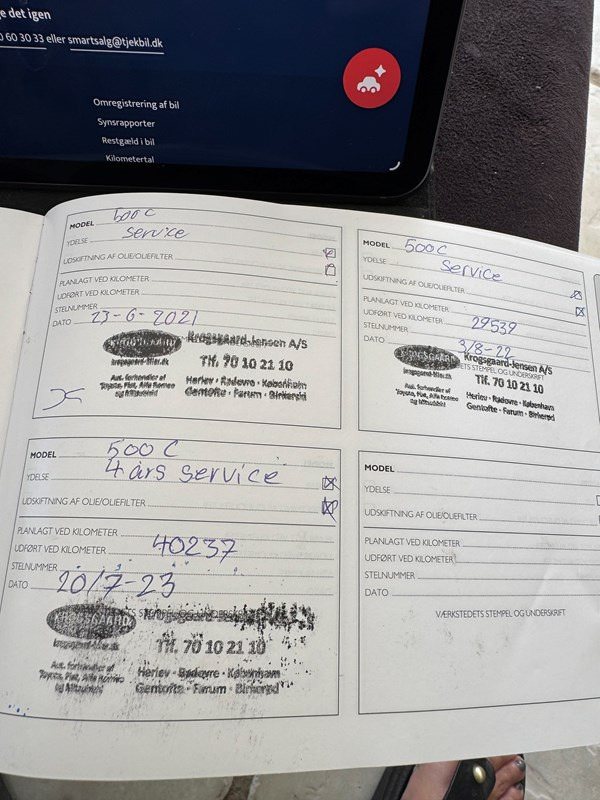 e det igen
60 30 33 eller smartsalg@tjekbil.dk
Omregistrering af bil
Synsrapporter
Restgæld i bil
Kilometertal
MODEL 500C
YDELSE Service
UDSKIFTNING AF OLIE/OLIEFILTER
PLANLAGT VED KILOMETER
UDFØRT VED KILOMETER
STELNUMMER
DATO 23-6-2021
KROGSGAARD Krogsgaard-Jensen A/S
krogsgaard-biler.dk Tlf. 70 10 21 10
Aut. forhandler af
Toyota, Fiat, Alfa Romeo
og Mitsubishi
Herlev · Rødovre · København
Gentofte · Farum · Birkerød
MODEL 500C
YDELSE Service
UDSKIFTNING AF OLIE/OLIEFILTER
PLANLAGT VED KILOMETER
UDFØRT VED KILOMETER 29539
STELNUMMER
DATO 3/8-22
KROGSGAARD Krogsgaard-Jensen A/S
ETS STEMPEL OG UNDERSKRIFT
krogsgaard-biler.dk Tlf. 70 10 21 10
Aut. forhandler af
Toyota, Fiat, Alfa Romeo
og Mitsubishi
Herlev · Rødovre · København
Gentofte · Farum · Birkerød
MODEL 500C
YDELSE 4 års service
UDSKIFTNING AF OLIE/OLIEFILTER
PLANLAGT VED KILOMETER
UDFØRT VED KILOMETER 40237
STELNUMMER
DATO 20/7-23
KROGSGAARD
krogsgaard-biler.dk Tlf. 70 10 21 10
Aut. forhandler af
Toyota, Fiat, Alfa Romeo
og Mitsubishi
Herlev · Rødovre · København
Gentofte · Farum · Birkerød
MODEL
YDELSE
UDSKIFTNING AF OLIE/OLIEFILTER
PLANLAGT VED KILOMETER
UDFØRT VED KILOMETER
STELNUMMER
DATO
VÆRKSTEDETS STEMPEL OG UNDERSKRIFT